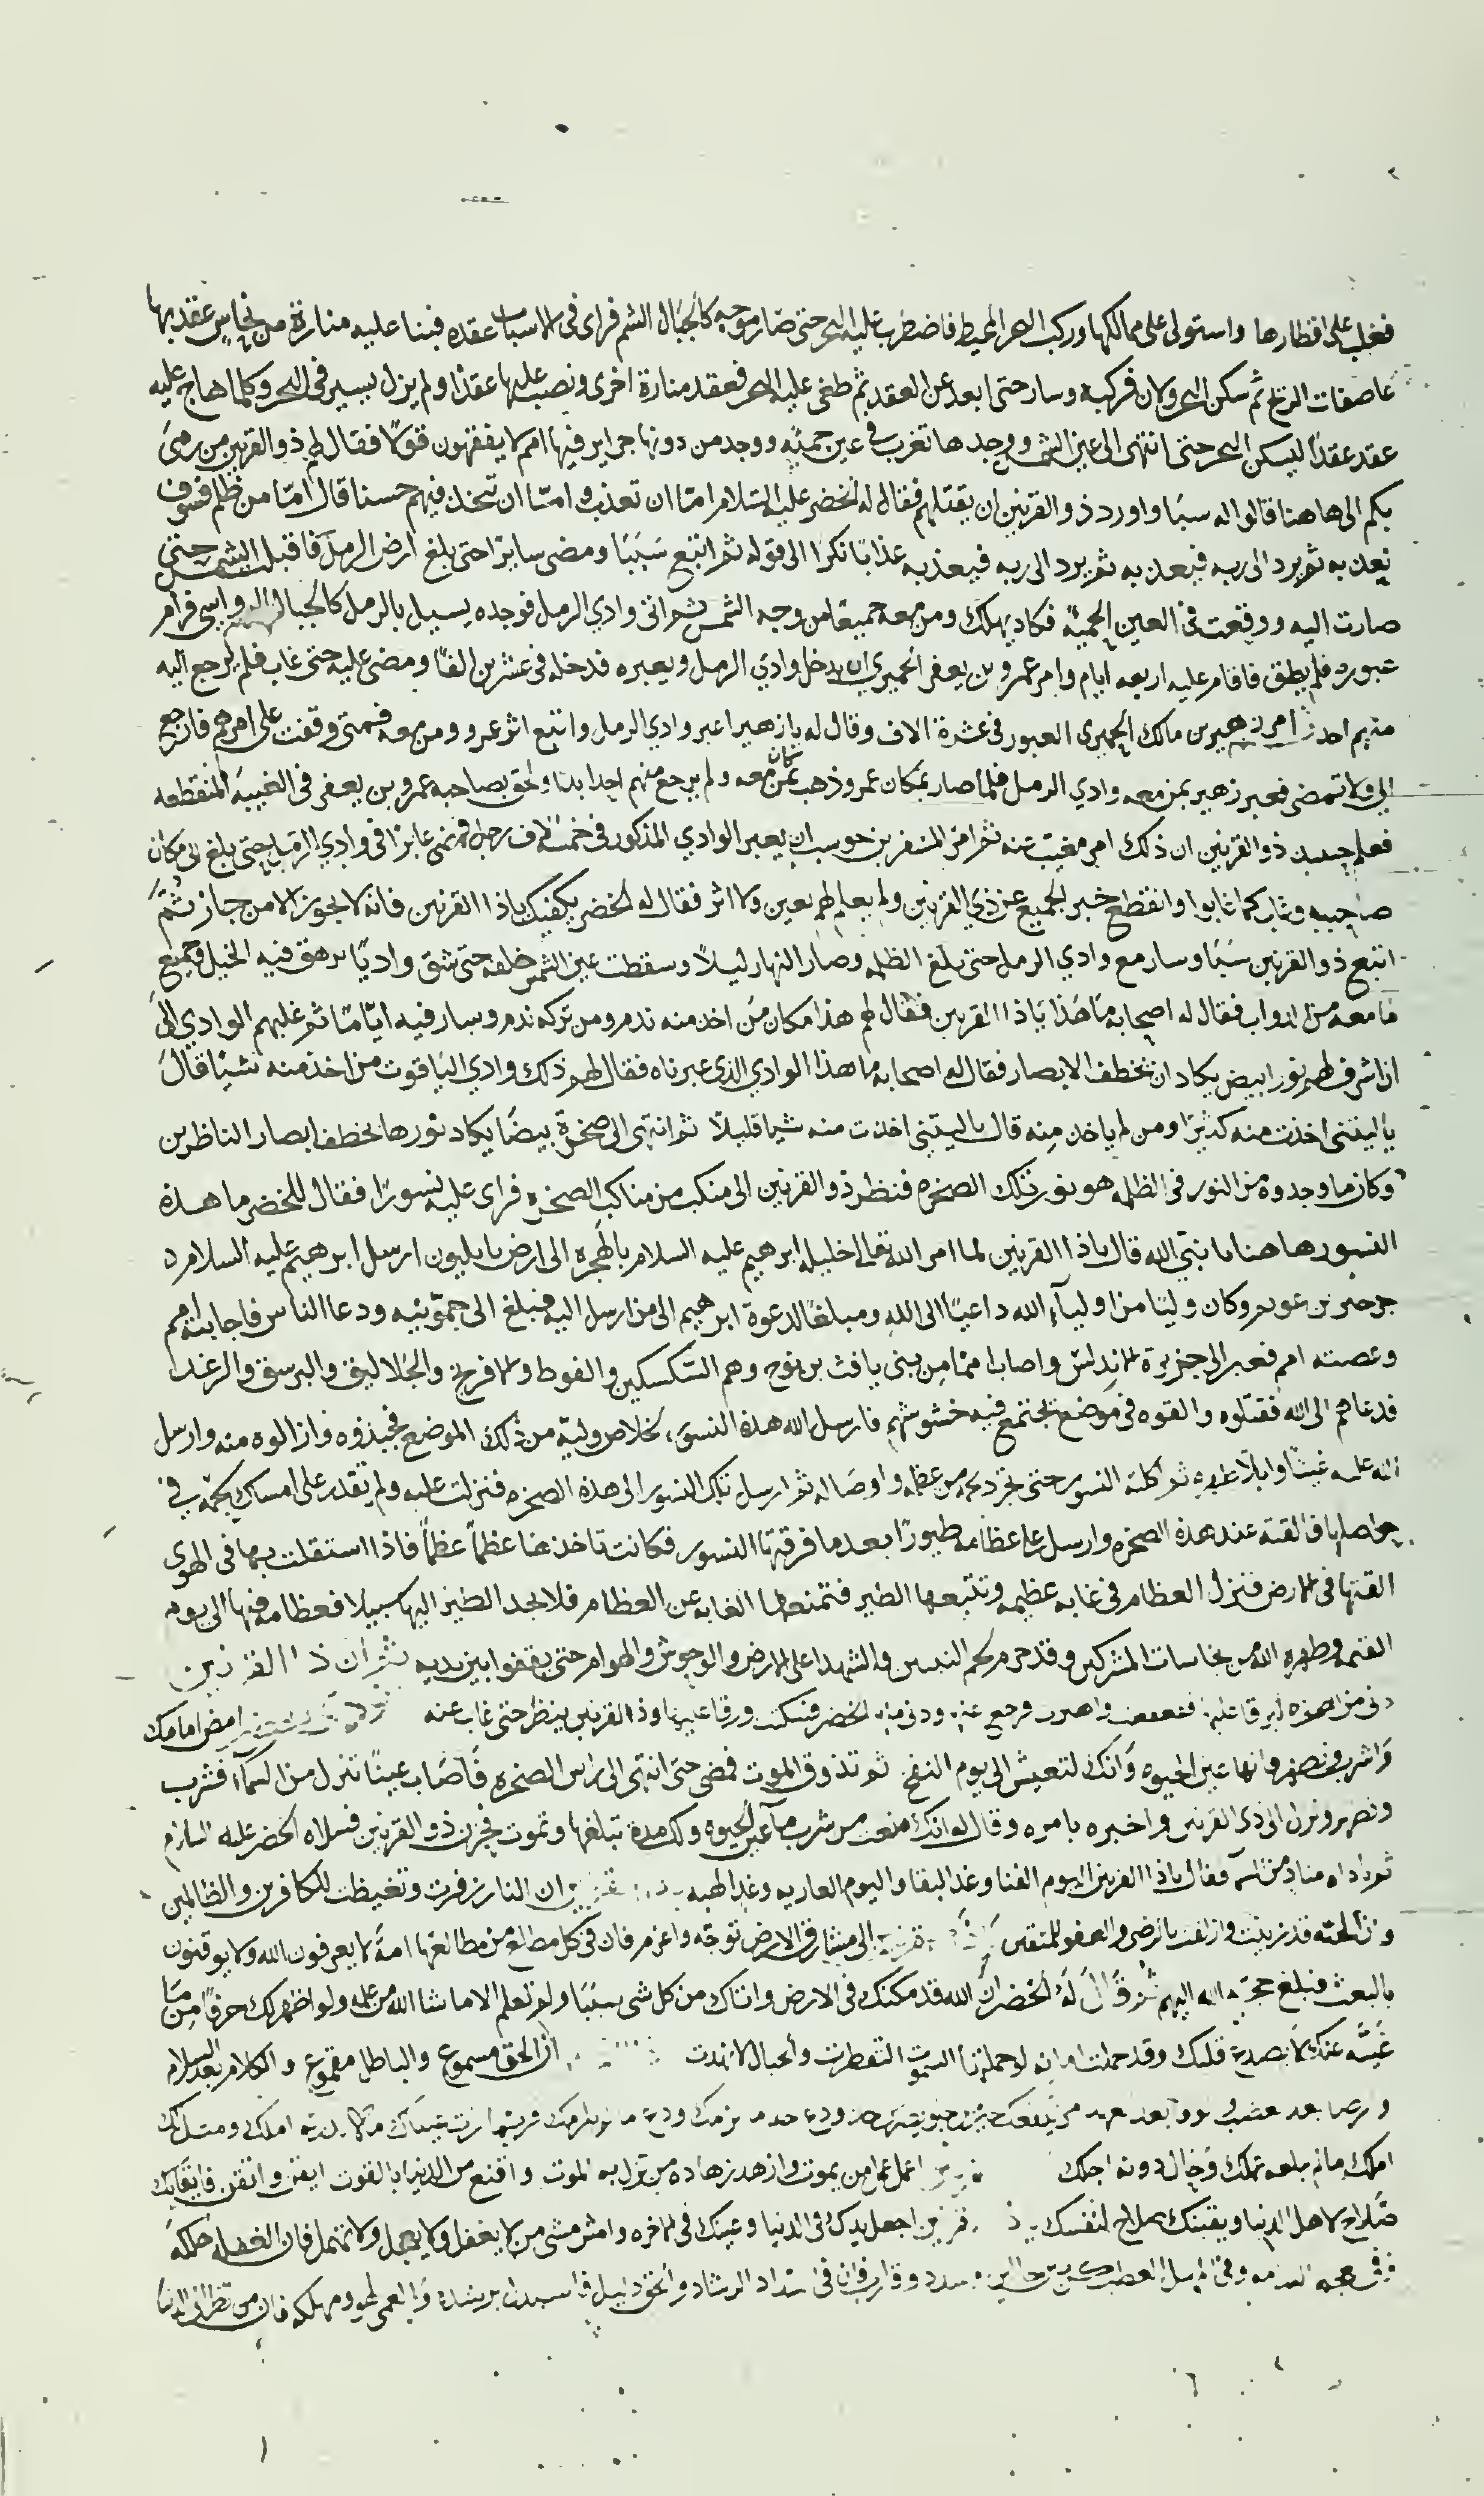 فغلب على اقطارها واستولى على ممالكها وركب البحر المحيط فاضطرب عليه البحر حتى صار موجه كالجبال الشم فراى فى الاسباب عقده فبنا عليه منارة من نحاس عقد بها
عاصفات الريح ثم سكن البحر ولان فركبه وسار حتى ابعد عن العقد ثم طغى عليه البحر فعقد منارة اخرى ونصب عليها عقدًا ولم يزل يسير فى البحر وكلما هاج عليه
عقد عقدًا ليسكن البحر حتى انتهى الى عين الشمس ووجدها تغرب فى عين حمئه ووجد من دونها جزاير فيها امم لا يفقهون قولا فقال لهم ذو القرنين من رمى
بكم الى هاهنا قالوا له سبا واورد ذو القرنين ان يقتلهم فقال له الخضر عليه السلام امّا ان تعذب وامّا ان تتخذ فيهم حسنا قال امّا من ظلم فسوف
نعذبه ثم يرد الى ربه فيعذبه ثم يرد الى ربه فيعذبه عذابًا نكرًا الى قوله ثم اتبع سَبَبًا ومضى سايرًا حتى بلغ ارض الرمل فاقبلت الشمس حتى
صارت اليه ووقعت فى العين الحمئة فكاد يهلك ومن معه جميعًا من وجه الشمس ثم اتى وادي الرمل فوجده يسيل بالرمل كالجبال الرواسى فرام
عبوره فلم يطق فاقام عليه اربعه ايام وامر عمرو بن يعفر الحميري ان يدخل وادي الرمل ويعبره فدخله فى عشرين الفًا ومضى عليه حتى غاب فلم يرجع اليه
منهم احد ثم امر زهير بن مالك الحميرى العبور فى عشرة الاف وقال له يا زهير اعبر وادي الرمل واتبع اثر عمرو ومن معه فمتى وقفت على امرهم فارجع
الي ولا تمضى فعبر زهير بمن معه وادي الرمل فلما صار بمكان عمرو ذهب بمن كان معه ولم يرجع منهم احد ابدا ولحق بصاحبه عمرو بن يعفر فى الغيبه المنقطعه
فعلم حينيذ ذو القرنين ان ذلك امر مغيب عنه ثم امر المسفر بن حوسب ان يعبر الوادي المذكور فى خمسة الاف رجل فمضى عابرًا فى وادي الرمل حتى بلغ الى مكان
صاحبيه وغاب كما غابوا وانقطع خبر الجميع عن ذي القرنين ولم يعلم لهم بعين ولا اثر فقال له الخضر يكفيك يا ذا القرنين فانه لا يجوز الا من جاز ثُمَّ
اتبع ذو القرنين سَبَبًا وسار مع وادي الرمل حتى بلغ الظلمه وصار النهار ليلًا وسقطت عين الشمس خلفه حتى شق واديًا تزهق فيه الخيل وجميع
ما معه من الدواب فقال له اصحابه مَا هذا يَا ذا القرنين فقال لهم هذا مكان من اخذ منه ندم ومن تركه ندم وسار فيه ايّامًا ثم غلبهم الوادي الى
ان اشرف لهم نور ابيض يكاد ان يخطف الابصار فقال له اصحابه ما هذا الوادي الذى عبرناه فقال لهم ذلك وادي الياقوت من اخذ منه شيئًا قَالَ
يَا ليتنى اخذت منه كثيرًا ومن لم ياخذ منه قال يا ليتنى اخذت منه شيا قليلًا ثم انتهى الى صخرة بيضَا يكاد نورها يخطف ابصار الناظرين
وكان ما وجدوه من النور فى الظلمه هو نور تلك الصخره فنظر ذو القرنين الى منكب من مناكب الصخره فراى عليه نسورًا فقال للخضر ما هذة
النسور هاهنا يا نبي الله قال يا ذا القرنين لما امر الله تعالى خليله ابرهيم عليه السلام بالهجره الى ارض بابليون ارسل ابرهيم عليه السلام د
جرجير بن عويم وكان وليّا من اولياء الله داعيًا الى الله ومبلغًا لدعوة ابرهيم الى من ارسل اليه فبلغ الى ودعا الناس فاجابته امم
وعصته امم فعبر الى جزيرة الاندلس واصاب امما من بنى يافث بن نوح وهم السكسكين والقوط والافرنج والجلاليق والبرسق والرغند
فدعاهم الى الله فقتلوه والقوه فى موضع يجتمع فيه فارسل الله هذه النسور لخلاص وليّه من ذلك الموضع فجبذوه وازالوه منه وارسل
الله عليه غيثًا وابلًا ثم اكلته النسور حتى تجرد لحمه من عظمه واوصاله ثم ارسل تلك النسور الى هذه الصخره فنزلت عليه ولم تقدر على امساك لحمه فى
حواصلها فالقته عند هذه الصخره وارسل على عظامه طيورًا بعد ما فرقتها النسور فكانت تاخذها عظمًا عظمًا فاذا استقلت بها فى الهوى
القتها فى الارض فنزل العظام فى غابه عظيمه وتتبعها الطير فتمنعها الغابه عن العظام فلا يجد الطير اليها سبيلا فعظامه فيها الى يوم
القيمه وطهره الله من نجاسات المشركين وقد حرم لحم النبيين والشهدا على الارض والوحوش والهوام حتى يقفوا بين يديه ثم ان ذا القرنين
دنى من الصخره ليرقا عليها فرجع عنها ودنى منها الخضر فسكنت ورقا عليها وذا القرنين ينظر حتى غاب عنه امض امامك
واشرب وتطهر وانها عين الحيوه وانك لتعيش الى يوم النفخ ثم تذوق الموت فمضى حتى انتهى الى راس الصخره فَاصَاب عينًا تنزل من السمآء فشرب
وتطهر ونزل الى ذى القرنين واخبره بامره وقال له انك منعت من شرب مآء عين الحيوه ولك مدة تبلغها وتموت فحزن ذو القرنين فسلاه الخضر عليه السلام
ثم ناداه مناد من السمآء فقال يا ذا القرنين اليوم الفنا وغدًا البقا واليوم العاريه وغدًا الهبه ان النار زفرت وتغيظت للكافرين والظالمين
وان الجنه قد زينت وازلفت بالرضى والعفو للمتقين الى مشارق الارض توجّه واعزم فان فى كل مطلع من مطالعها امة لا يعرفون الله ولا يوقنون
بالبعث فبلغ حجة الله اليهم ثم قَالَ لَهُ الخضر ان الله قد مكنك فى الارض واتاك من كل شى سببًا ولم تعلم الا ما شا الله من علمه ولو اظهر لك حرفًا من ما
غيّبه عنك قلبك وقد حملت امانه لو حملتها السموت انفطرت والجبال لانهدت ان الحق مسموع والباطل مقموع والكلام بعد السلام
املك ما لم يبلغه عملك وحال دونه اجلك اعمل عمل من يموت وازهد زهاده من نزل به الموت واقنع من الدنيا بالقوت ايقن واتقن فايقانك
صلاح لاهل الدنيا ويقينك صلاح لنفسك اجعل يدك فى الدنيا وعينك فى الاخره وامش مشى من لا يغفل ولا يجهل ولا تمهل فان الغفله هلكه
فان فى سداد الرشاد والحق دليل والعمى لهو ومهلكه فان من نظر الى الدنيا